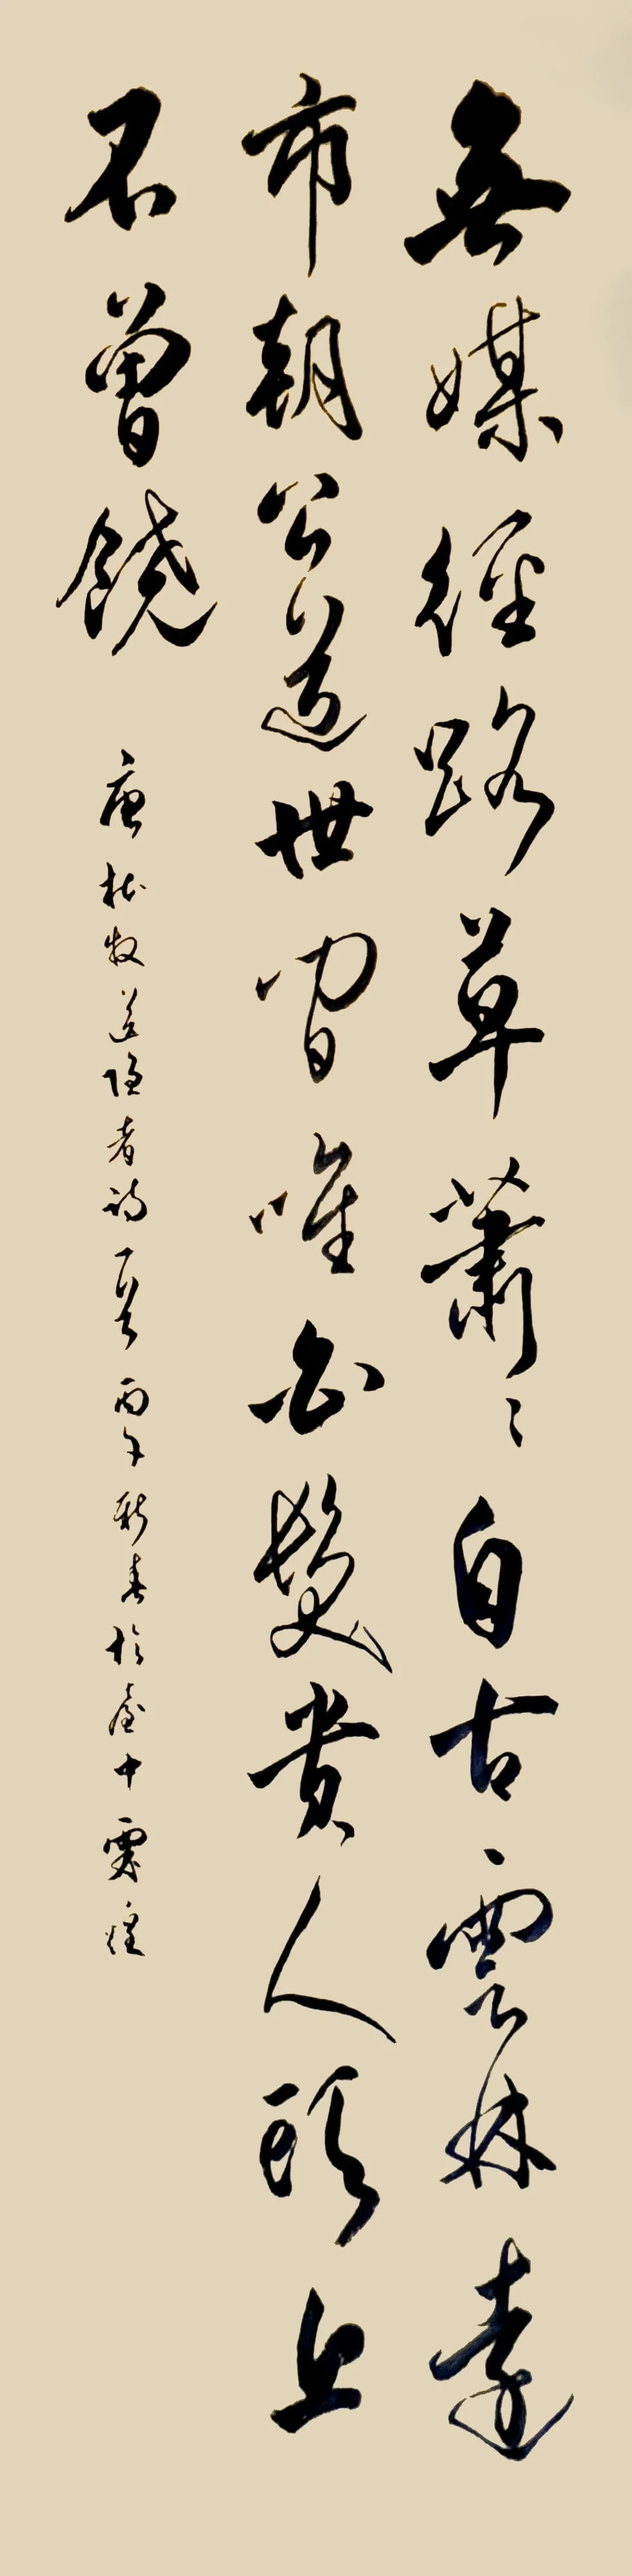 無媒徑路草蕭〻自古雲林遠
市朝公道世間唯白髮貴人頭上
不曾饒
唐杜牧送隱者詩一首丙午新春於臺中